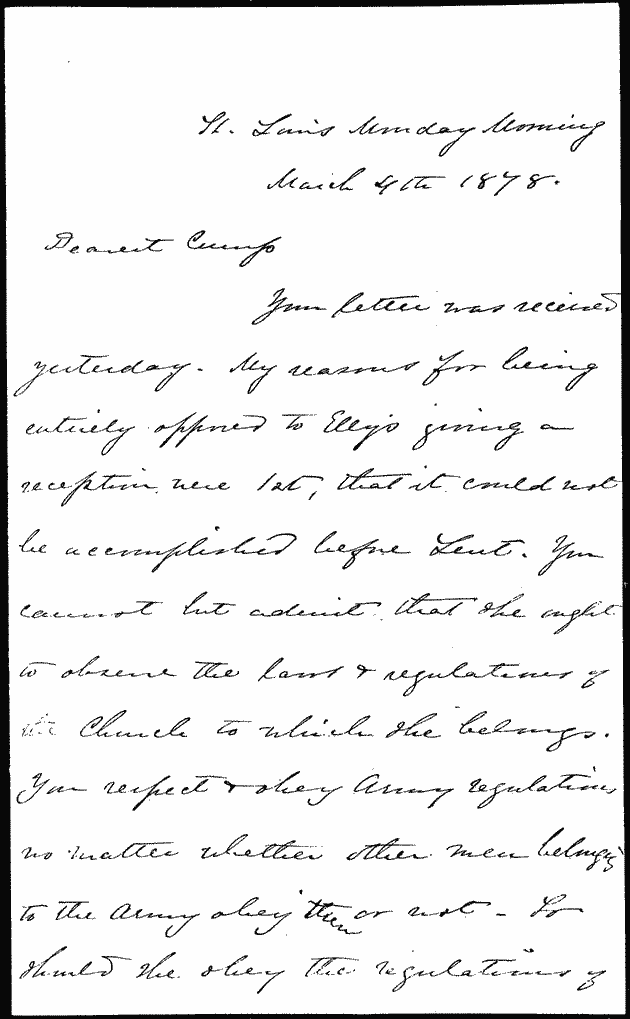 St. Louis Monday Morning
March 4th 1878.
Dearest Cump
Your letter was received
yesterday. My reasons for being
entirely opposed to Elly's giving a
reception were 1st, that it could not
be accomplished before Lent. You
cannot but admit that she ought
to observe the laws & regulations of
the Church to which she belongs.
You respect & obey Army regulations
no matter whether other men belonging
to the Army obey them or not - So
should she obey the regulations of